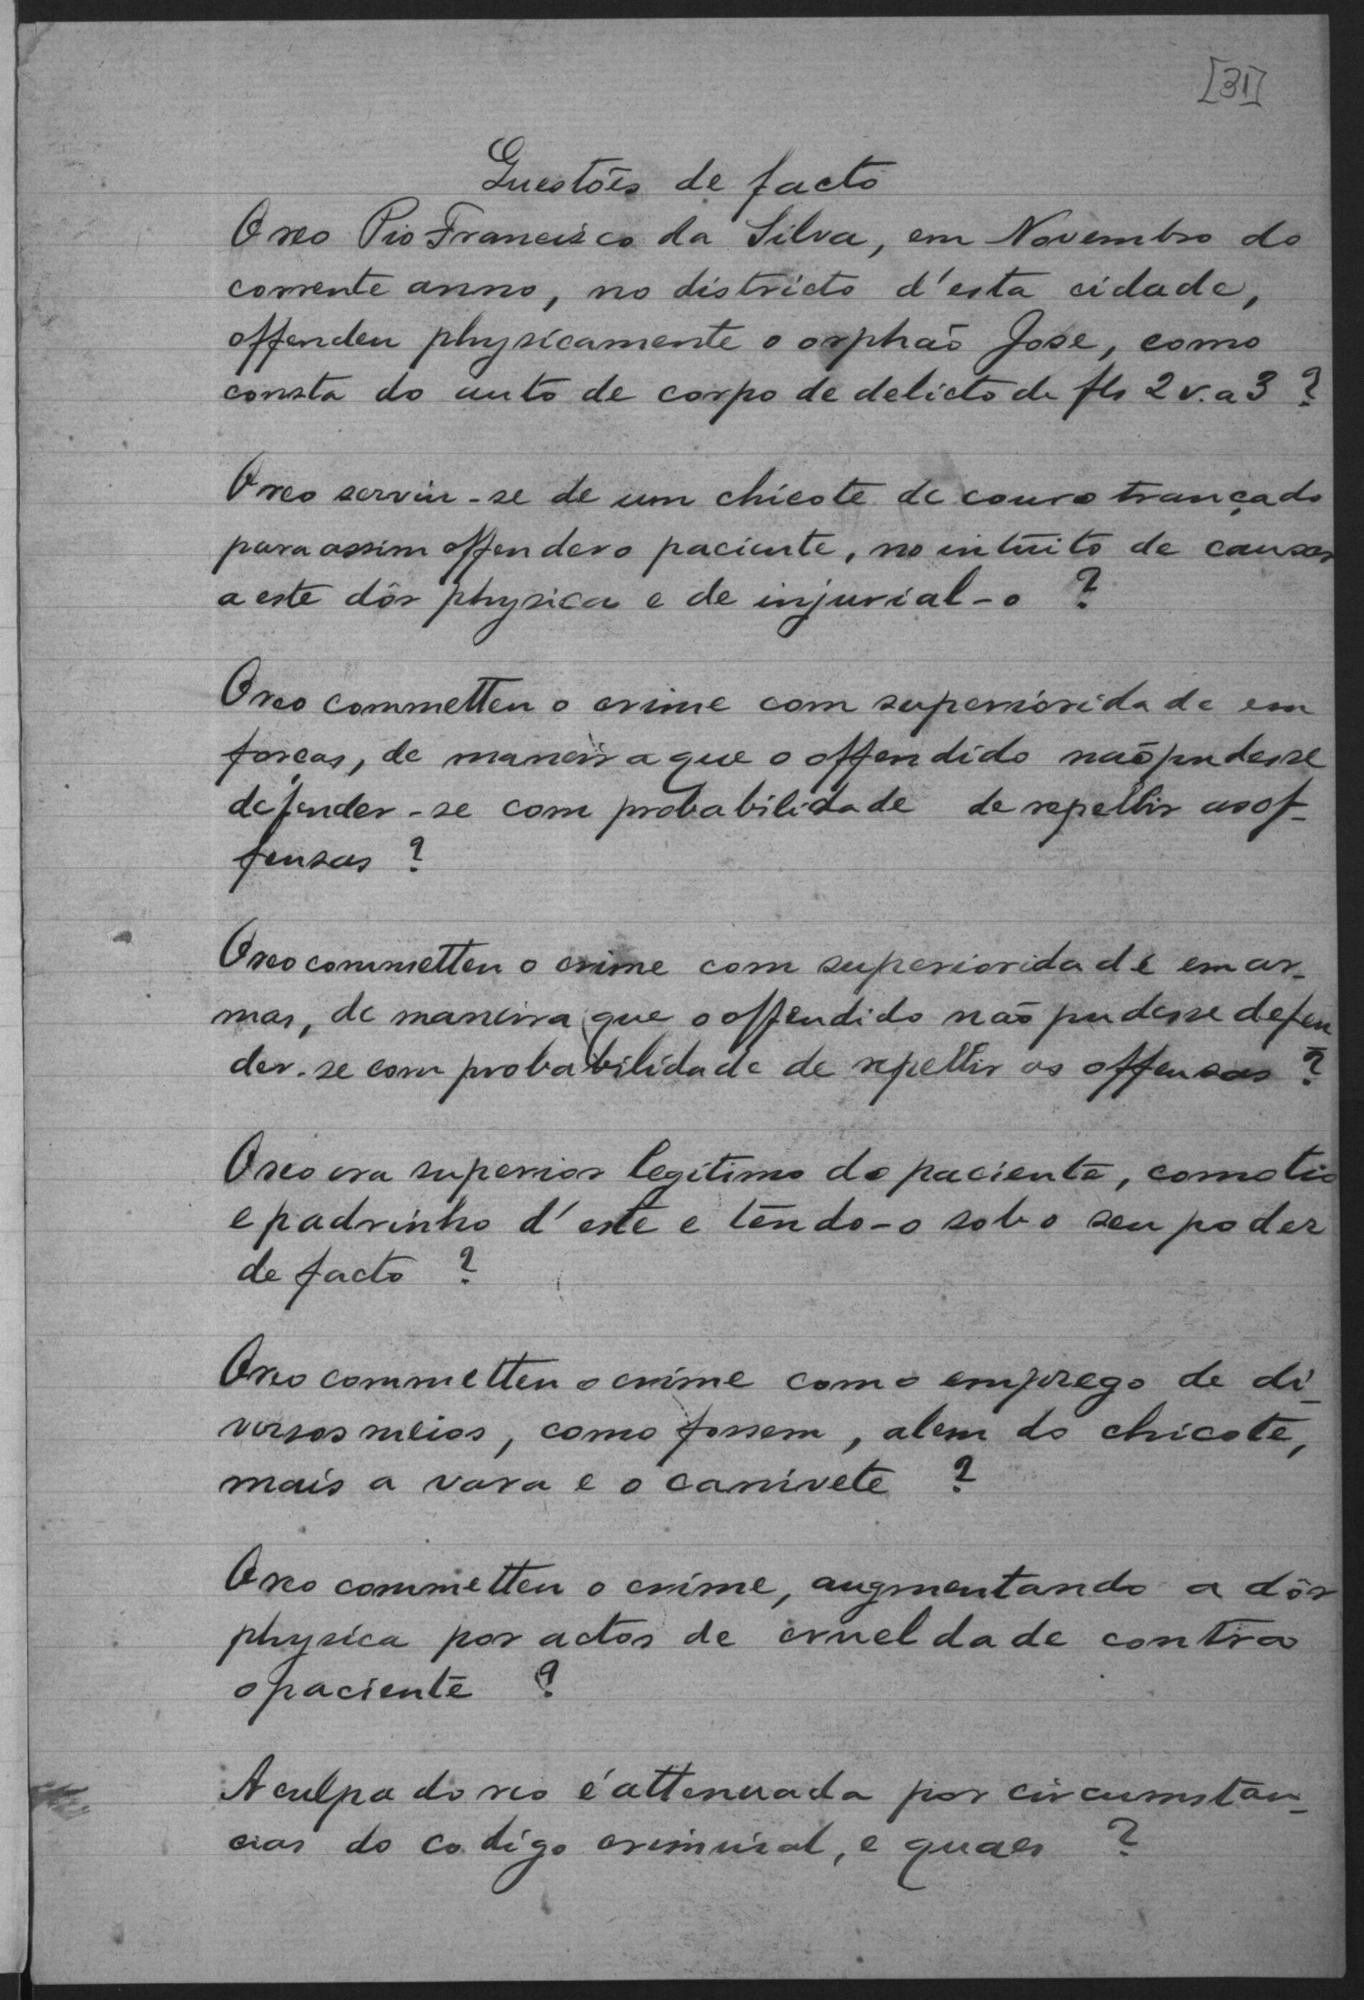 [31]
Questões de facto
O reo Pio Francisco da Silva, em Novembro do
corrente anno, no districto d'esta cidade,
offendeu physicamente o orphaõ José, como
consta do auto de corpo de delicto de fls 2 v. a 3 ?
O reo serviu-se de um chicote de couro trançado
para assim offender o paciente, no intuito de causar
a este dôr physica e de injurial-o ?
O reo commetteu o crime com superioridade em
forças, de maneira que o offendido naõ pudesse
defender-se com probabilidade de repellir as of-
fensas ?
O reo commetteu o crime com superioridade em ar-
mas, de maneira que o offendido naõ pudesse defen
der-se com probabilidade de repellir as offensas ?
O reo era superior legitimo do paciente, como tio
e padrinho d'este e tendo-o sob o seu poder
de facto ?
O reo commetteu o crime com o emprego de di-
versos meios, como fossem, alem do chicote,
mais a vara e o canivete ?
O reo commetteu o crime, augmentando a dôr
physica por actos de crueldade contra
o paciente ?
A culpa do reo é attenuada por circumstan-
cias do codigo criminal, e quaes ?